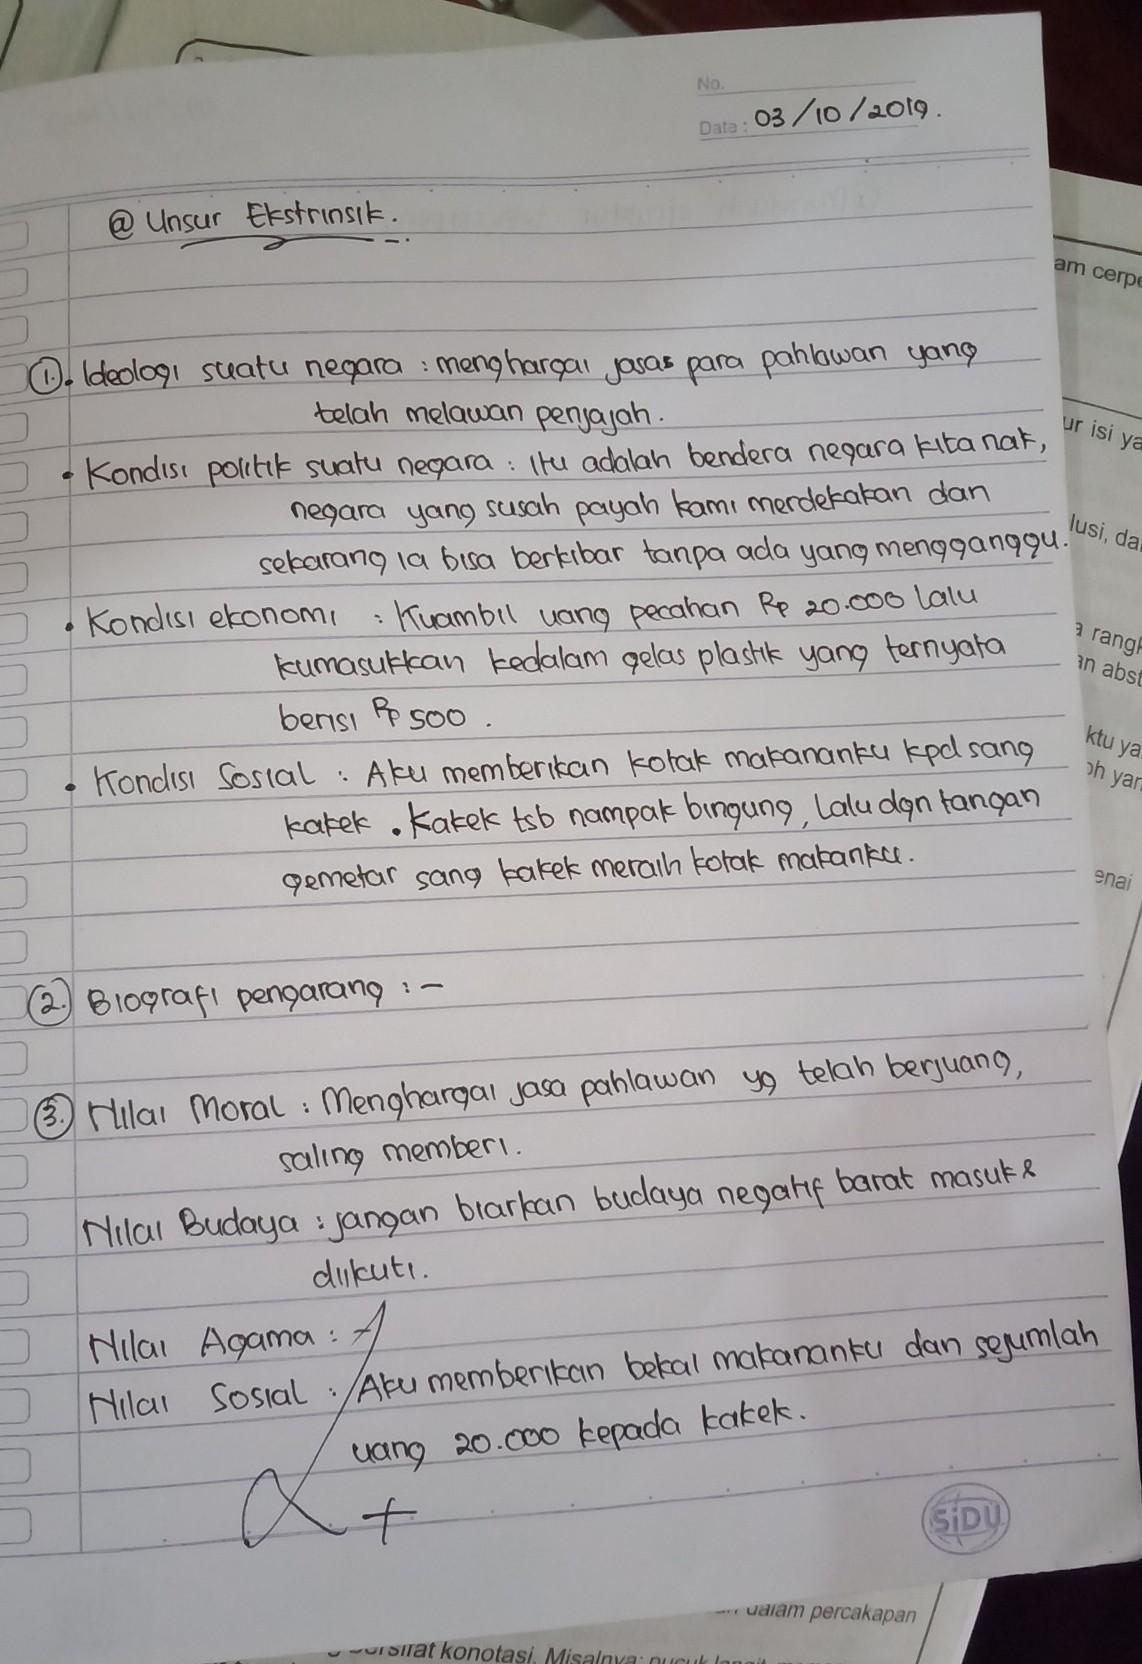 No.
Date : 03/10/2019.
@ Unsur Ekstrinsik.
1. Ideologi suatu negara : menghargai jasas para pahlawan yang
telah melawan penjajah.
• Kondisi politik suatu negara : Itu adalah bendera negara kita nak,
negara yang susah payah kami merdekakan dan
sekarang ia bisa berkibar tanpa ada yang mengganggu.
• Kondisi ekonomi : Kuambil uang pecahan Rp 20.000 lalu
kumasukkan kedalam gelas plastik yang ternyata
berisi Rp 500.
• Kondisi Sosial : Aku memberikan kotak makananku kpd sang
kakek. Kakek tsb nampak bingung, Lalu dgn tangan
gemetar sang kakek meraih kotak makanku.
2. Biografi pengarang : -
3. Nilai Moral : Menghargai jasa pahlawan yg telah berjuang,
saling memberi.
Nilai Budaya : jangan biarkan budaya negatif barat masuk &
diikuti.
Nilai Agama : -
Nilai Sosial : Aku memberikan bekal makananku dan sejumlah
uang 20.000 kepada kakek.
A+
SiDU
am cerpe
ur isi ya
lusi, da
a rangk
an abst
ktu ya
oh yan
enai
dalam percakapan
bersifat konotasi. Misalnya: